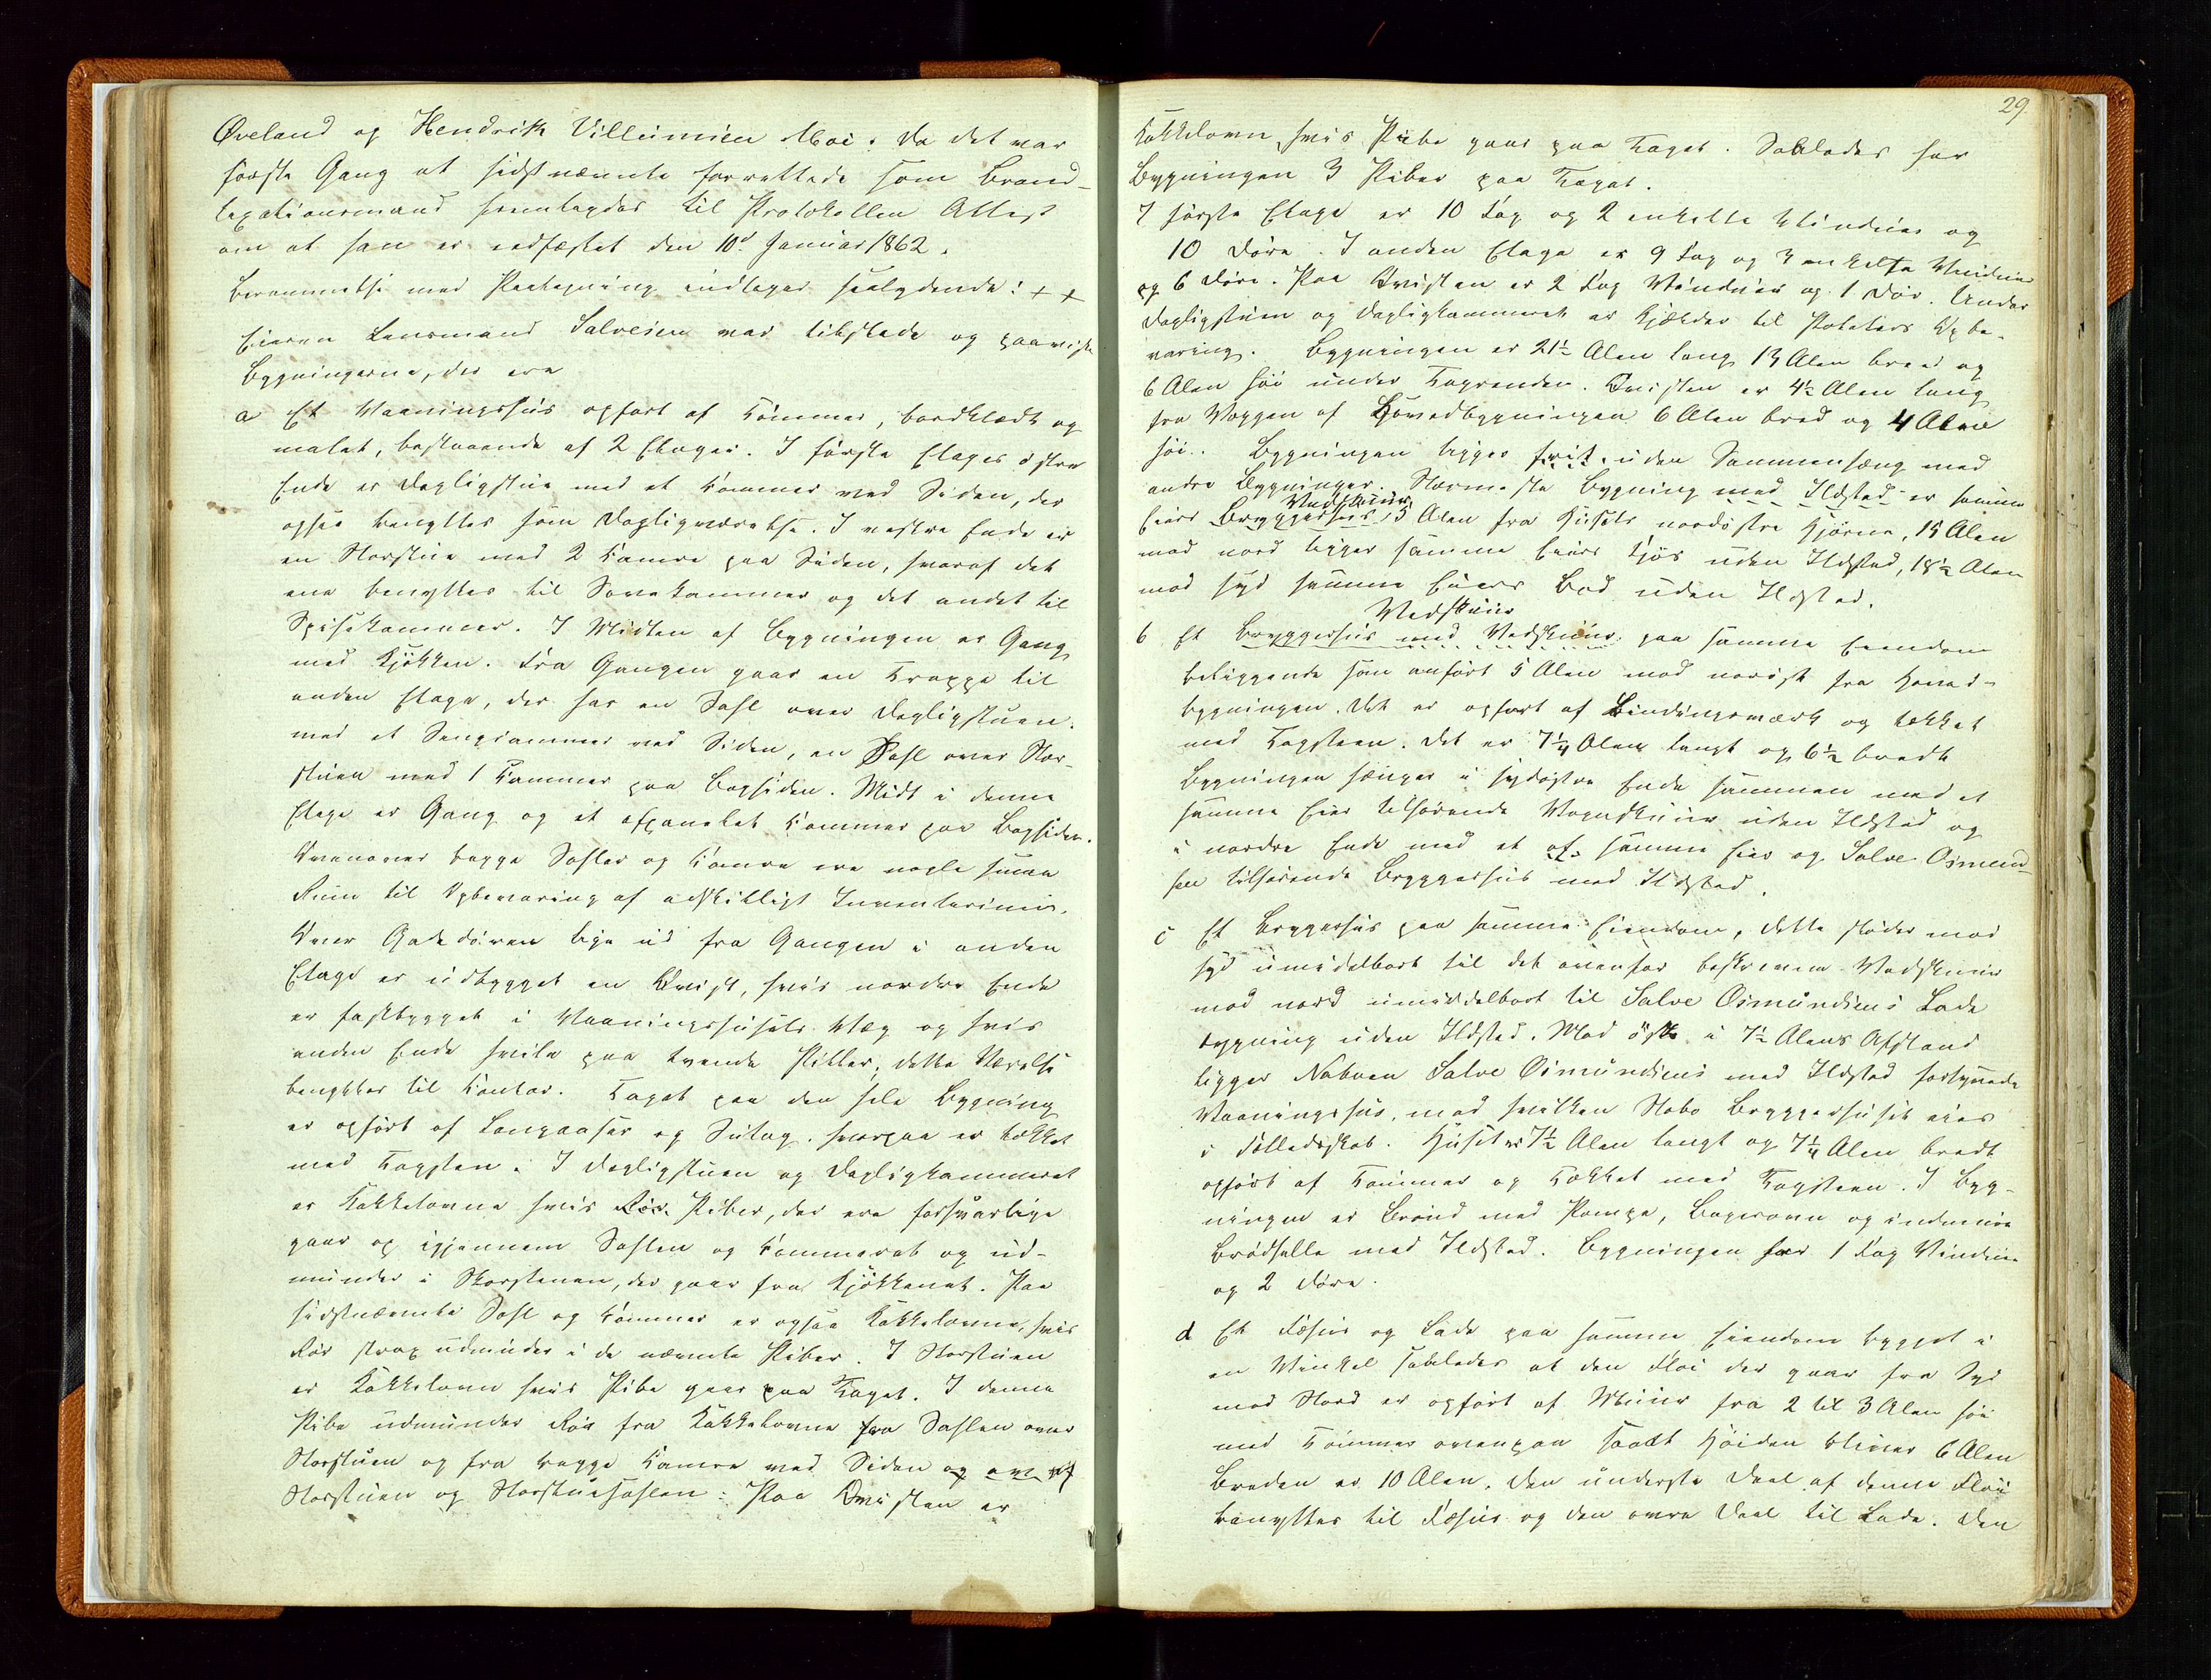 Øveland og Hendrik Villumsen Moi. Da det var
første Gang at sidstnævnte forrettede som Brand-
taxationsmand fremlagdes til Protokollen Attest
om at han er edfæstet den 10d Januar 1862.
Berammelse med Paategning indtages saalydende: ++
Eieren Lensmand Salvesen var tilstede og paaviste
Bygningerne, der ere
a Et Vaaningshus opført af Tømmer, bordklædt og
malet, bestaaende af 2 Etager. I første Etages østre
Ende er Dagligstue med et Kammer ved Siden, der
ogsaa benyttes som Dagligværelse. I vestre Ende er
en Storstue med 2 Kamre paa Siden, hvoraf det
ene benyttes til Sovekammer og det andet til
Spisekammer. I Midten af Bygningen er Gang
med Kjøkken. Fra Gangen gaar en Trappe til
anden Etage, der har en Sahl over Dagligstuen
med et Sengekammer ved Siden, en Sahl over Stor-
stuen med 1 Kammer paa Bagsiden. Midt i denne
Etage er Gang og et afpanelet Kammer paa Bagsiden.
Ovenover begge Sahler og Kamre ere nogle smaa
Rum til Opbevaring af adskilligt Inventarium.
Over Gadedøren lige ud fra Gangen i anden
Etage er udbygget en Kvist, hvis nordre Ende
er fastbygget i Vaaningshusets Væg og hvis
anden Ende hvile paa tvende Piller, dette Værelse
benyttes til Kontor. Taget paa den hele Bygning
er opført af Langaaser og Sutag, hvorpaa er tækket
med Tagsten. I Dagligstuen og Dagligkammeret
er Kakkelovne hvis Rør. Piber, der ere forsvarlige
gaar op igjennem Sahlen og Kammeret og ud-
munder i Skorstenen, der gaar fra Kjøkkenet. Paa
sidstnævnte Sahl og Kammer er ogsaa Kakkelovne, hvis
Rør strax udmunder i de nævnte Piber. I Storstuen
er Kakkelovn hvis Pibe gaar paa Taget. I denne
Pibe udmunder Rør fra Kakkelovne fra Sahlen over
Storstuen og fra begge Kamre ved Siden og
Storstuen og Storstuesahlen: Paa Kvisten er
29.
Kakkelovn, hvis Pibe gaar paa Taget. Saaledes har
Bygningen 3 Piber paa Taget.
I første Etage er 10 Fag og 2 enkelte Vinduer og
10 Døre. I anden Etage er 9 Fag og 3 enkelte Vinduer
og 6 Døre. Paa Kvisten er 2 Fag Vinduer og 1 Dør. Under
Dagligstuen og Dagligkammeret er Kjælder til Poteters Opbe-
varing. Bygningen er 21½ Alen lang 13 Alen bred og
6 Alen høi under Tagrenden. Kvisten er 4½ Alen lang
fra Væggen af Hovedbygningen 6 Alen bred og 4 Alen
høi.. Bygningen ligger frit uden Sammenhæng med
andre Bygninger. Nærmeste Bygning med Ildsted er samme
Vedskuur
Eiers Bryggerhus, 5 Alen fra Husets nordøstre Hjørne, 15 Alen
mod nord ligger samme Eiers Fjøs uden Ildsted, 18½ Alen
mod syd samme Eiers Bod uden Ildsted.
Vedskuur
b Et Bryggerhus med Vedskuur paa samme Eiendom
beliggende som anført 5 Alen mod norøst fra Hoved-
bygningen. Det er opført af Bindingsværk og tækket
med Tagsteen. Det er 7¼ Alen langt og 6½ bredt
Bygningen hænger i sydøstre Ende sammen med et
samme Eier tilhørende Vognskuur uden Ildsted og
i nordre Ende med et af samme Eier og Salve Osmund-
sen tilhørende Bryggerhus med Ildsted.
c Et Bryggerhus paa samme Eiendom, dette støder mod
syd umiddelbart til det ovenfor beskrevne Vedskuur
mod nord umiddelbart til Salve Osmundsens Lade
bygning uden Ildsted. Mod øst i 7½ Alens Afstand
ligger Naboen Salve Osmundsens med Ildsted forsynede
Vaaningshus, med hvilken Nabo Bryggerhuset eies
i Fælledsskab. Huset er 7½ Alen langt og 7¼ Alen bredt
opført af Tømmer og tækket med Tagsteen. I Byg-
ningen er Brønd med Pompe, Bagerovn og indmuret
Brødhelle med Ildsted. Bygningen har 1 Fag Vinduer
og 2 Døre.
d Et Fæhus og Lade paa samme Eiendom bygget i
en Vinkel saaledes at den Fløi der gaar fra Syd
mod Nord er opført af Muur fra 2 til 3 Alen høi
med Tømmer ovenpaa saa at Høiden bliver 6 Alen
Breden er 10 Alen. Den underste Deel af denne Fløi
benyttes til Fæhus og den øvre Deel til Lade. Den